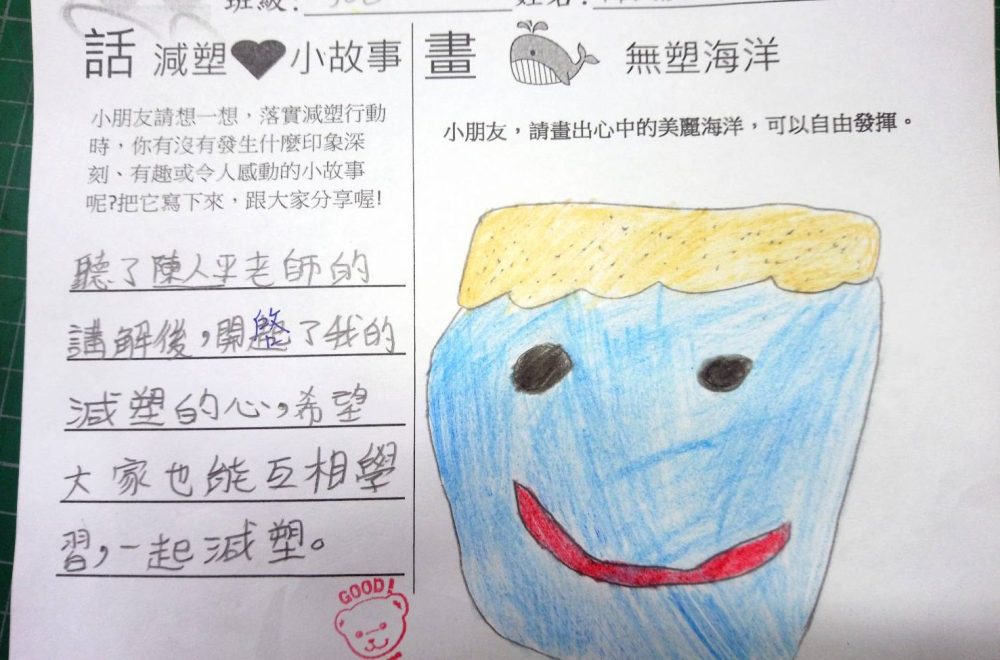 班級:
姓名:
話 減塑 小故事
小朋友請想一想，落實減塑行動
時，你有沒有發生什麼印象深
刻、有趣或令人感動的小故事
呢?把它寫下來，跟大家分享喔!
聽了陳人平老師的
講解後，開啟了我的
減塑的心，希望
大家也能互相學
習，一起減塑。
GOOD!
畫 無塑海洋
小朋友，請畫出心中的美麗海洋，可以自由發揮。